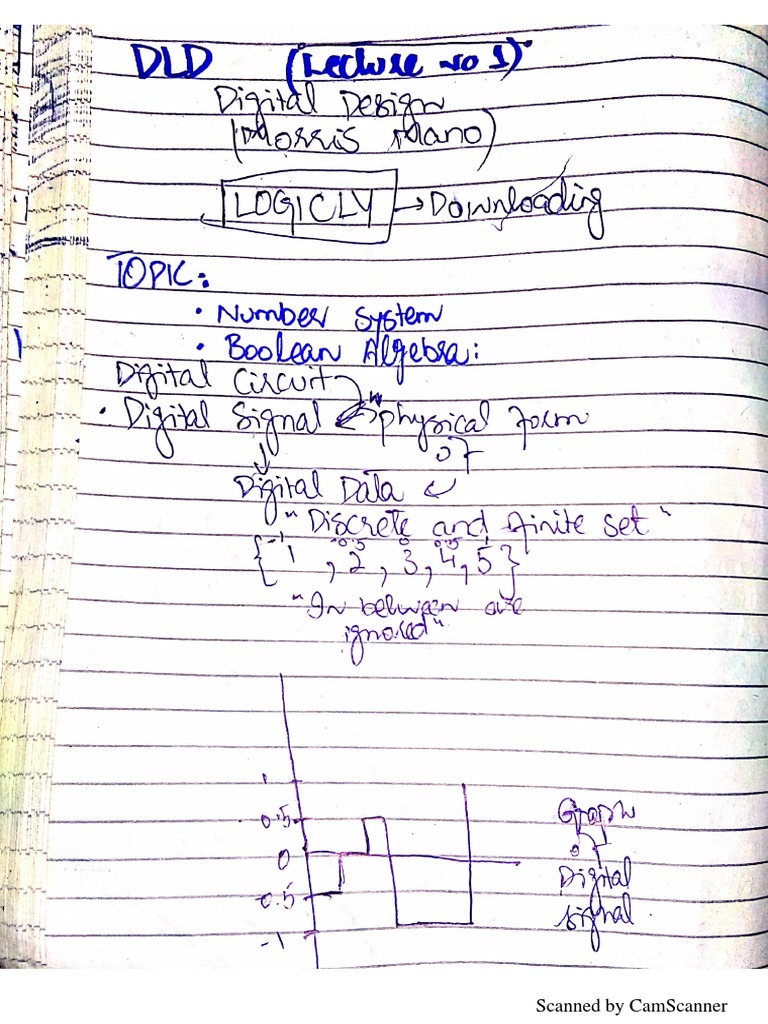 DLD (Lecture no 1)
Digital Design
(Morris Mano)
LOGICLY → Downloading
TOPIC:
• Number System
• Boolean Algebra:
Digital Circuit
• Digital Signal physical form
of
Digital Data
"Discrete and finite set"
-1 -0.5 0 0.5 1
{ 1 , 2 , 3 , 4 , 5 }
"In between are
ignored"
1
0.5
0
-0.5
-1
Graph
of
Digital
signal
Scanned by CamScanner